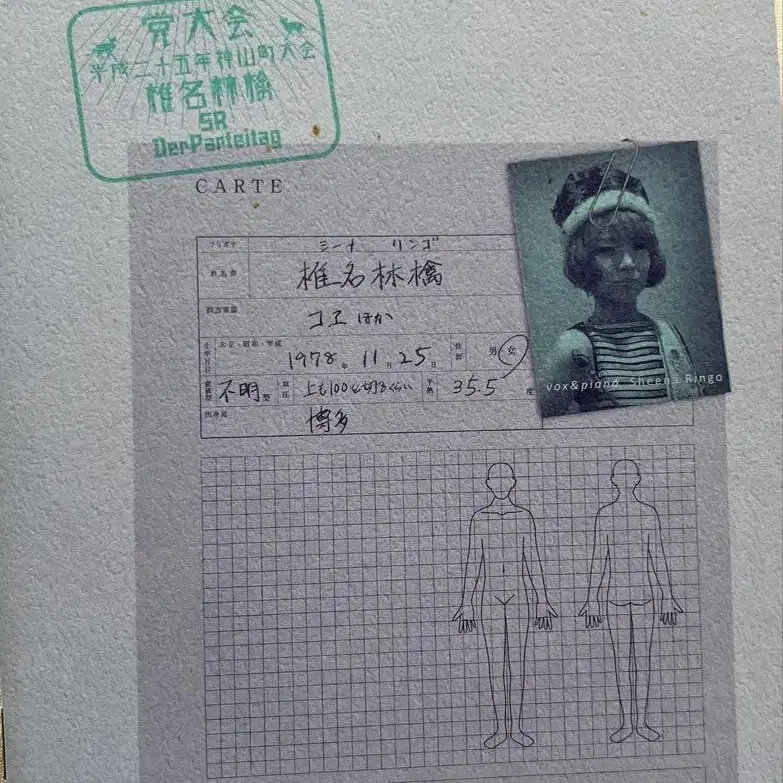 党大会
平成二十五年神山町大会
椎名林檎
SR
DerParteitag
CARTE
フリガナ シーナ リンゴ
お名前 椎名林檎
担当楽器 コヱほか
生年月日 大正・昭和・平成 1978年 11月 25日 性別 男 女
血液型 不明型 血圧 上も100を切るくらい 平熱 35.5度
出身地 博多
vox&piano Sheena Ringo